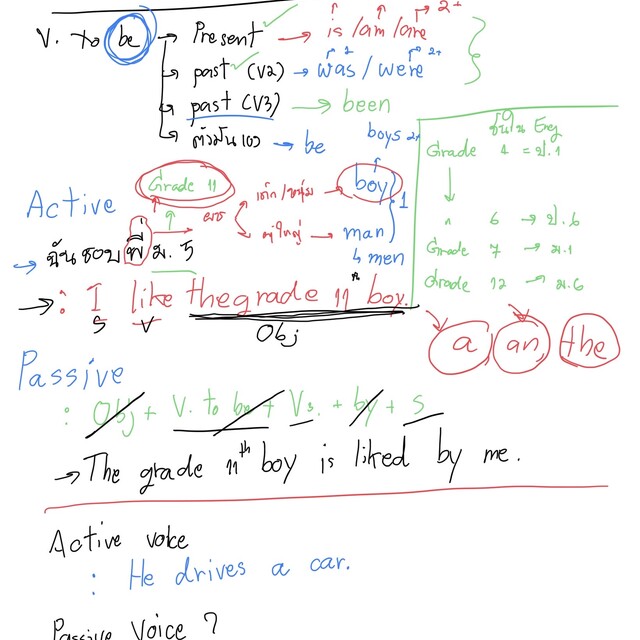 V. to be → Present → is /am /are 2+
past (V2) → was / were 1 2+
past (V3) → been
ตัวมันเอง → be
boys 2+
ชั้นใน Eng
Grade 1 = ป.1
6 → ป.6
Grade 7 → ม.1
Grade 12 → ม.6
Active
Grade 11
เด็ก/หนุ่ม → boy 1
ผู้ใหญ่ → man
↳ men
→ ฉันชอบพี่ ม.5
→ : I like the grade 11th boy.
S V Obj
a an the
Passive
: Obj + V. to be + V3. + by + S
→ The grade 11th boy is liked by me.
Active voice
: He drives a car.
Passive Voice ?